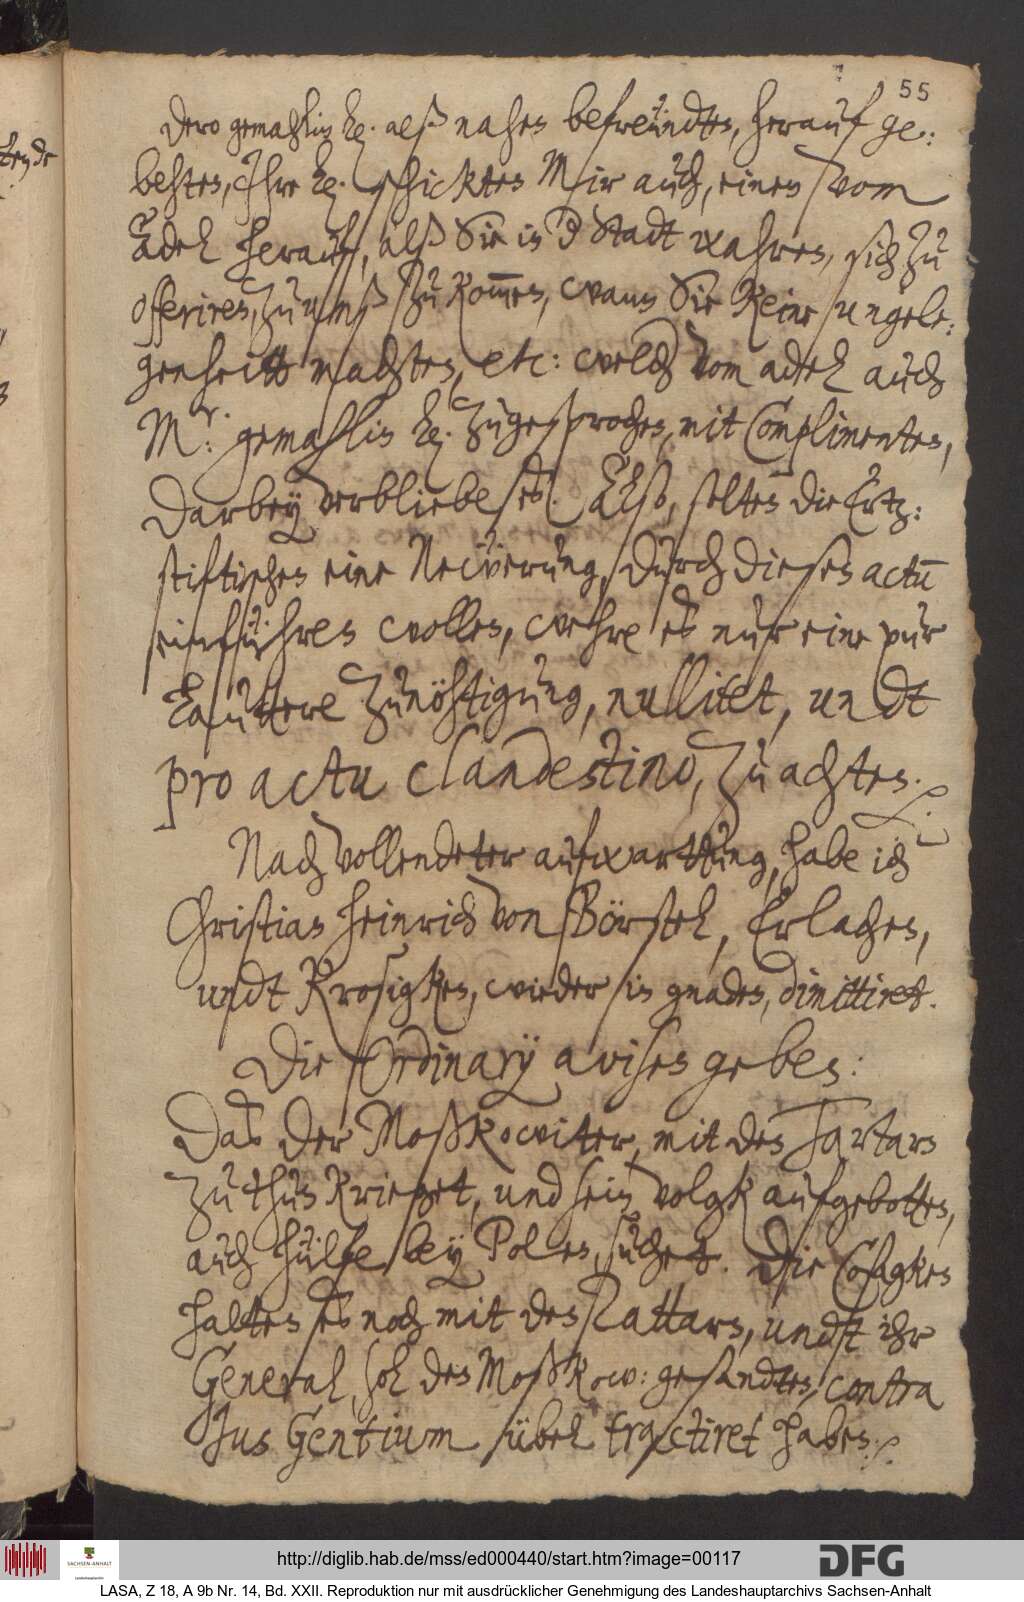 55
dero gemahlin Lx. alß nahen befreündten, herauf ge:
behten, Ihre Lx. schickten Mir auch, einen vom
Adel herauf, alß Sie in d Stadt wahren, sich zu
offeriren, zu unß zu kommen, wann Sie keine ungele:
genheitt machten, etc: welch vom adel auch
Mr: gemahlin Lx. zugesprochen, mit Complimenten,
Darbey verbliebe es. Also, solten die Ertz:
stiftischen eine Neẅerung, durch diesen actum
einführen wollen, wehre es nur eine pur
Lauttere zunöhtigung, nullitet, undt
pro actu clandestino, zu achten.
Nach vollendeter aufwarttung, habe ich
Christian Heinrich von Börstel, Erlachen,
undt Krosigken, wieder in gnaden, dimittiret.
Die Ordinarÿ avisen geben:
Das der Moßkowiter, mit den Tartarn
zu thun krieget, und sein volgk aufgebotten,
auch hülfe beÿ Polen, suchet. Die Cosagken
halten es noch mit den Tattarn, undt ihr
General, sol den Moßkow: gesandten, contra
Jus Gentium übel tractiret haben.
http://diglib.hab.de/mss/ed000440/start.htm?image=00117
DFG
SACHSEN-ANHALT
LASA, Z 18, A 9b Nr. 14, Bd. XXII. Reproduktion nur mit ausdrücklicher Genehmigung des Landeshauptarchivs Sachsen-Anhalt